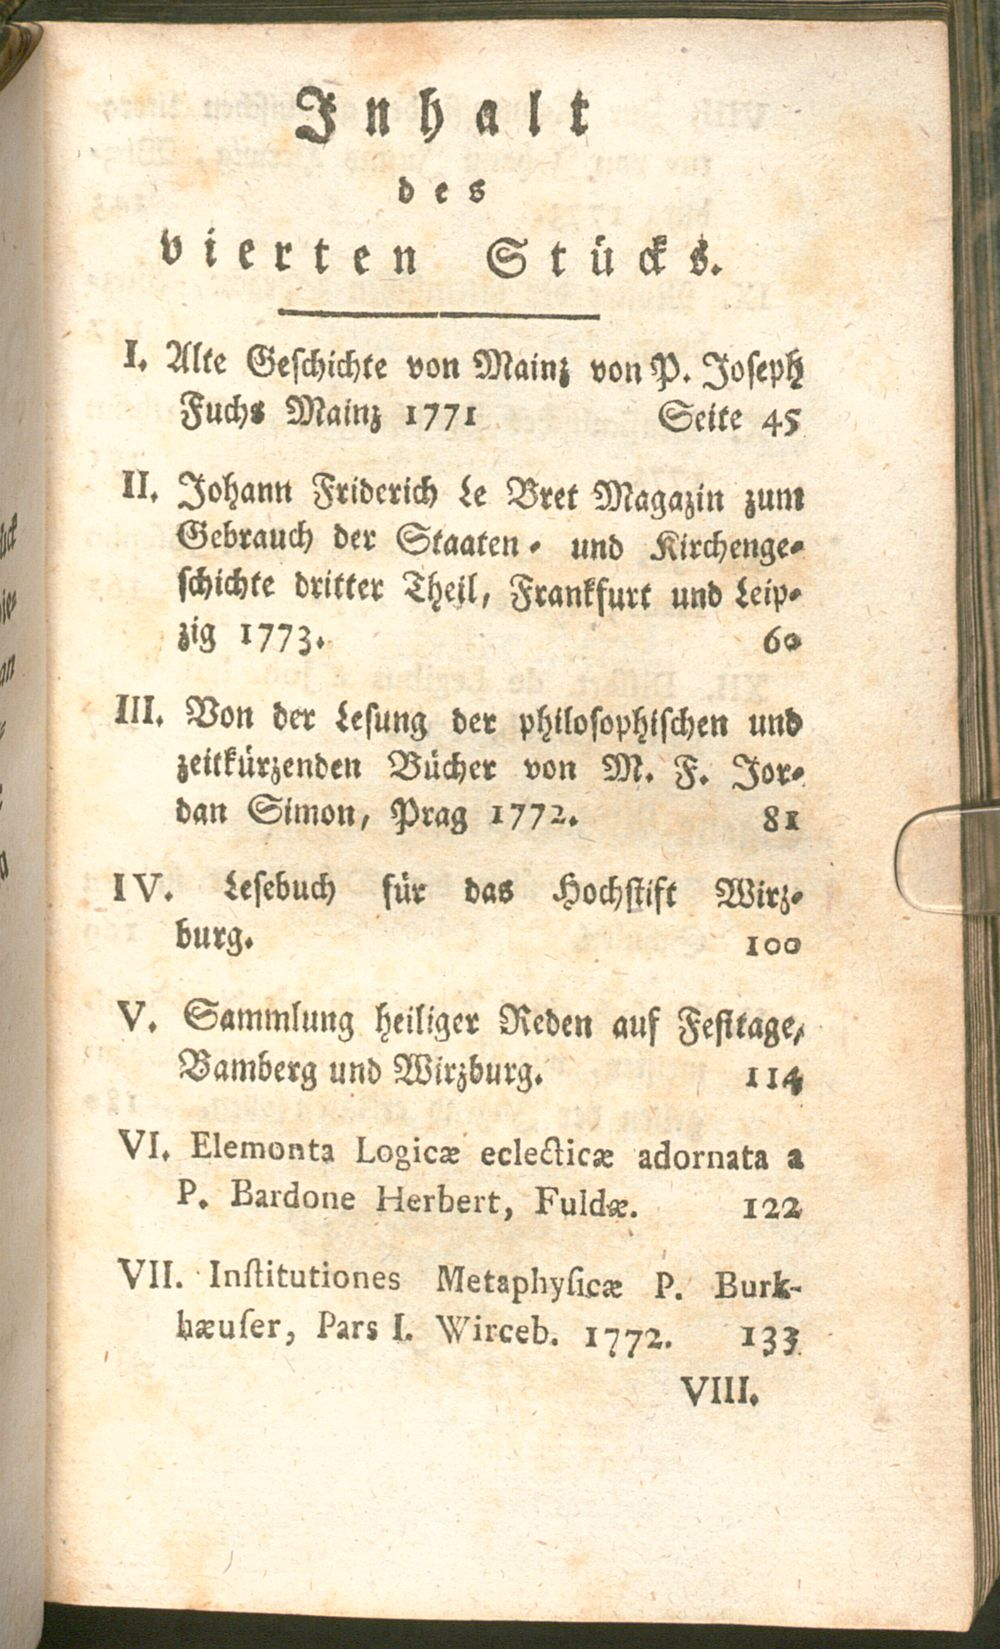 Inhalt
des
vierten Stücks.
I. Alte Geschichte von Mainz von P. Joseph
Fuchs Mainz 1771 Seite 45
II. Johann Friderich Le Bret Magazin zum
Gebrauch der Staaten- und Kirchenge-
schichte dritter Theil, Frankfurt und Leip-
zig 1773. 60
III. Von der Lesung der philosophischen und
zeitkürzenden Bücher von M. F. Jor-
dan Simon, Prag 1772. 81
IV. Lesebuch für das Hochstift Wirz-
burg. 100
V. Sammlung heiliger Reden auf Festtage,
Bamberg und Wirzburg. 114
VI. Elemonta Logicæ eclecticæ adornata a
P. Bardone Herbert, Fuldæ. 122
VII. Institutiones Metaphysicæ P. Burk-
hæuser, Pars I. Wirceb. 1772. 133
VIII.